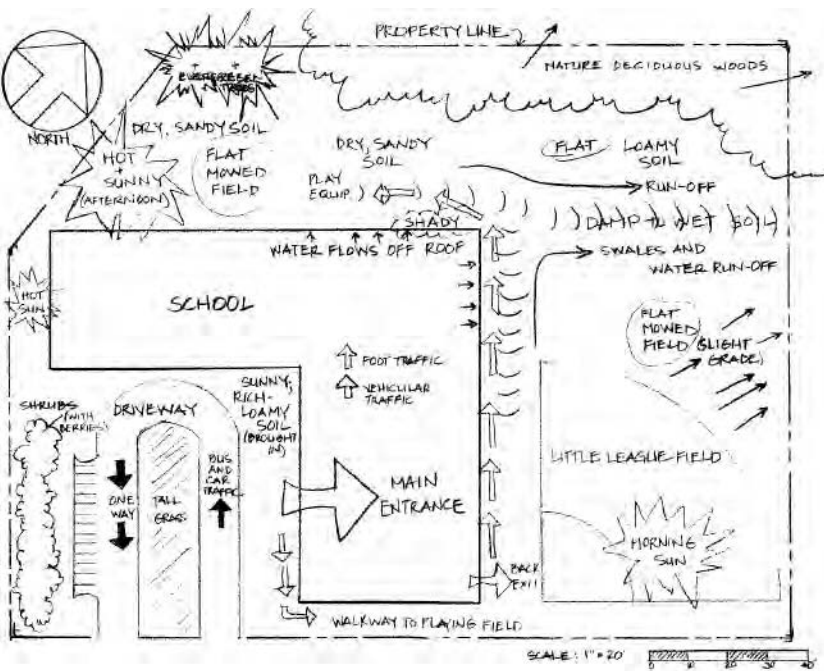 PROPERTY LINE
EVERGREEN
TREES
NATURE DECIDUOUS WOODS
NORTH
DRY, SANDY SOIL
HOT
+
SUNNY
(AFTERNOON)
FLAT
MOWED
FIELD
DRY, SANDY
SOIL
FLAT LOAMY
SOIL
PLAY
EQUIP.
RUN-OFF
SHADY
DAMP TO WET SOIL
WATER FLOWS OFF ROOF
SWALES AND
WATER RUN-OFF
HOT
SUN
SCHOOL
FLAT
MOWED
FIELD (SLIGHT
GRADE)
FOOT TRAFFIC
VEHICULAR
TRAFFIC
SHRUBS
(WITH
BERRIES)
DRIVEWAY
SUNNY,
RICH-
LOAMY
SOIL
(BROUGHT
IN)
ONE
WAY
TALL
GRASS
BUS
AND
CAR
TRAFFIC
MAIN
ENTRANCE
LITTLE LEAGUE FIELD
MORNING
SUN
BACK
EXIT
WALKWAY TO PLAYING FIELD
SCALE: 1"=20'
0 10 20 30 40